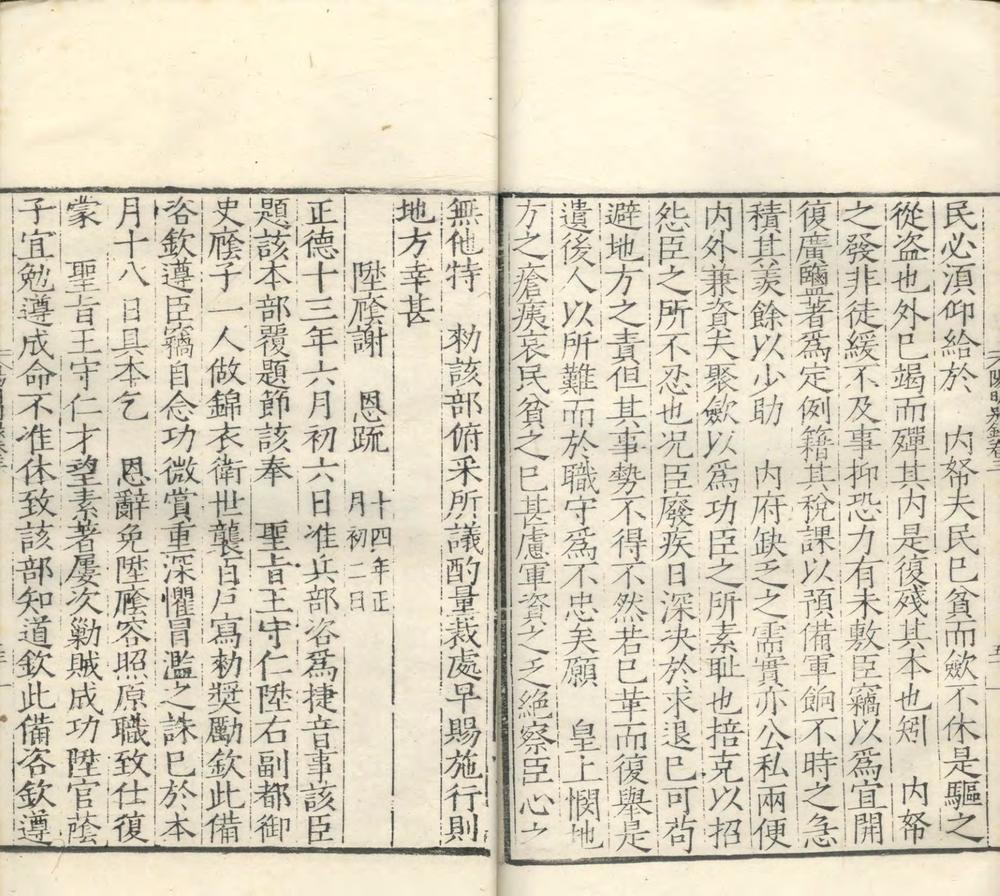 民必湏仰給於　内帑夫民巳貧而歛不休是驅之
從盗也外巳竭而殫其内是復殘其本也矧　内帑
之發非徒緩不及事抑恐力有未敷臣竊以爲宜開
復廣鹽著爲定例籍其稅課以預備軍餉不時之急
積其羡餘以少助　内府缺乏之需實亦公私兩便
内外兼資夫聚歛以爲功臣之所素耻也掊克以招
怨臣之所不忍也况臣廢疾日深决於求退巳可苟
避地方之責但其事勢不得不然若巳革而復舉是
遺後人以所難而於職守爲不忠矣願　皇上憫地
方之瘡痍哀民貧之巳甚慮軍資之乏絶察臣心之
無他特　勑該部俯采所議酌量裁處早賜施行則
地方幸甚
陞廕謝　恩疏　十四年正
月初二日
正德十三年六月初六日准兵部咨爲捷音事該臣
題該本部覆題節該奉　聖旨王守仁陞右副都御
史廕子一人做錦衣衛世襲百戶寫勑奬勵欽此備
咨欽遵臣竊自念功微賞重深懼冒濫之誅巳於本
月十八日具本乞　恩辭免陞廕容照原職致仕復
蒙　聖旨王守仁才望素著屢次勦賊成功陞官廕
子宜勉遵成命不准休致該部知道欽此備咨欽遵